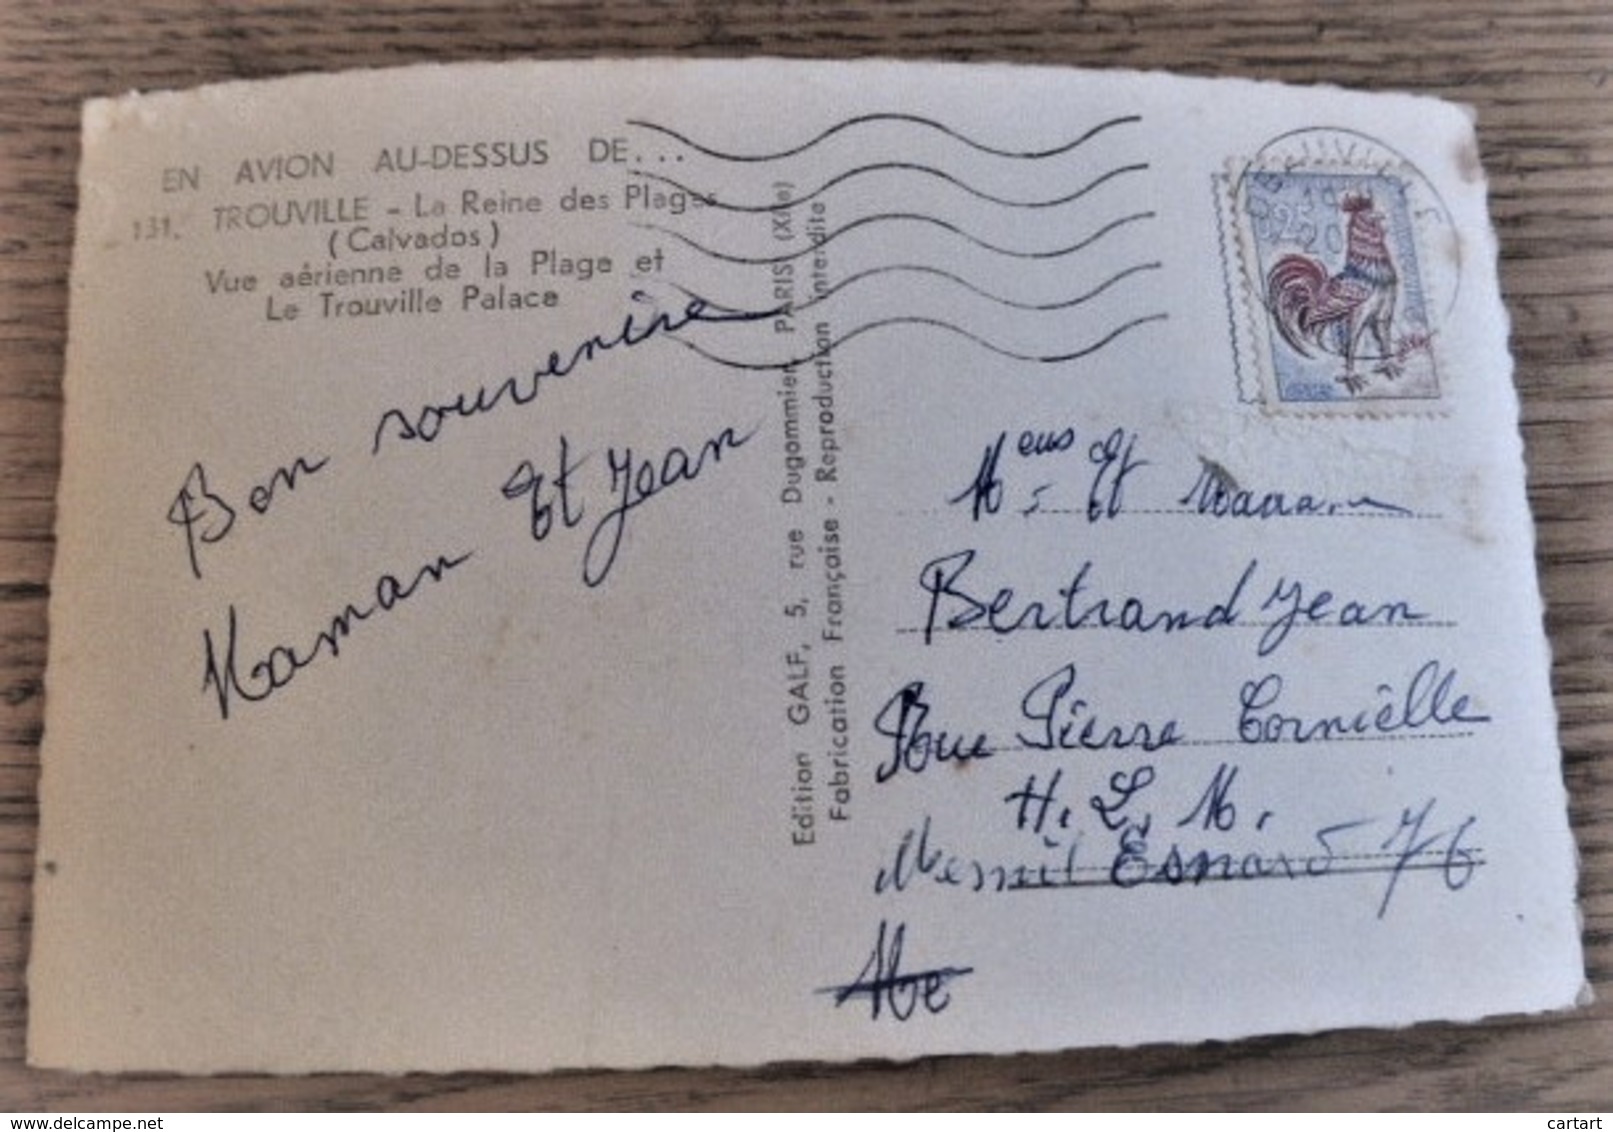 EN AVION AU-DESSUS DE...
131. TROUVILLE - La Reine des Plages
(Calvados)
Vue aérienne de la Plage et
Le Trouville Palace
Bon souvenire
Maman Et Jean
Edition GALF, 5, rue Dugommier PARIS (XIIe)
Fabrication Française - Reproduction interdite
0,25
Meus Et Madam
Bertrand Jean
Rue Pierre Corniélle
H. L. M.
Mesnil Esnard 76
Me
delcampe.net
cartart